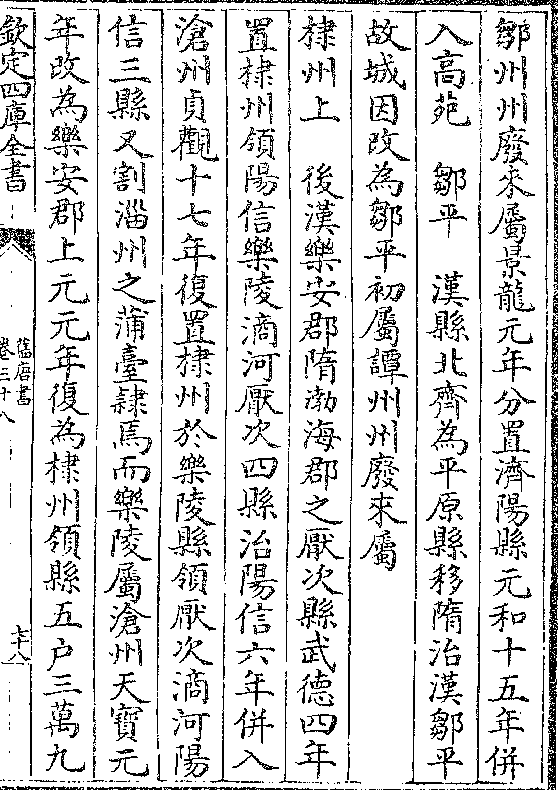 鄒州州廢來屬景龍元年分置濟陽縣元和十五年併
入高苑　鄒平　漢縣北齊為平原縣移隋治漢鄒平
故城因改為鄒平初屬譚州州廢來屬
棣州上　後漢樂安郡隋渤海郡之厭次縣武德四年
置棣州領陽信樂陵滴河厭次四縣治陽信六年併入
滄州貞觀十七年復置棣州於樂陵縣領厭次滴河陽
信三縣又割淄州之蒲臺隷焉而樂陵屬滄州天寶元
年改為樂安郡上元元年復為棣州領縣五户三萬九
欽定四庫全書
舊唐書
卷三十八